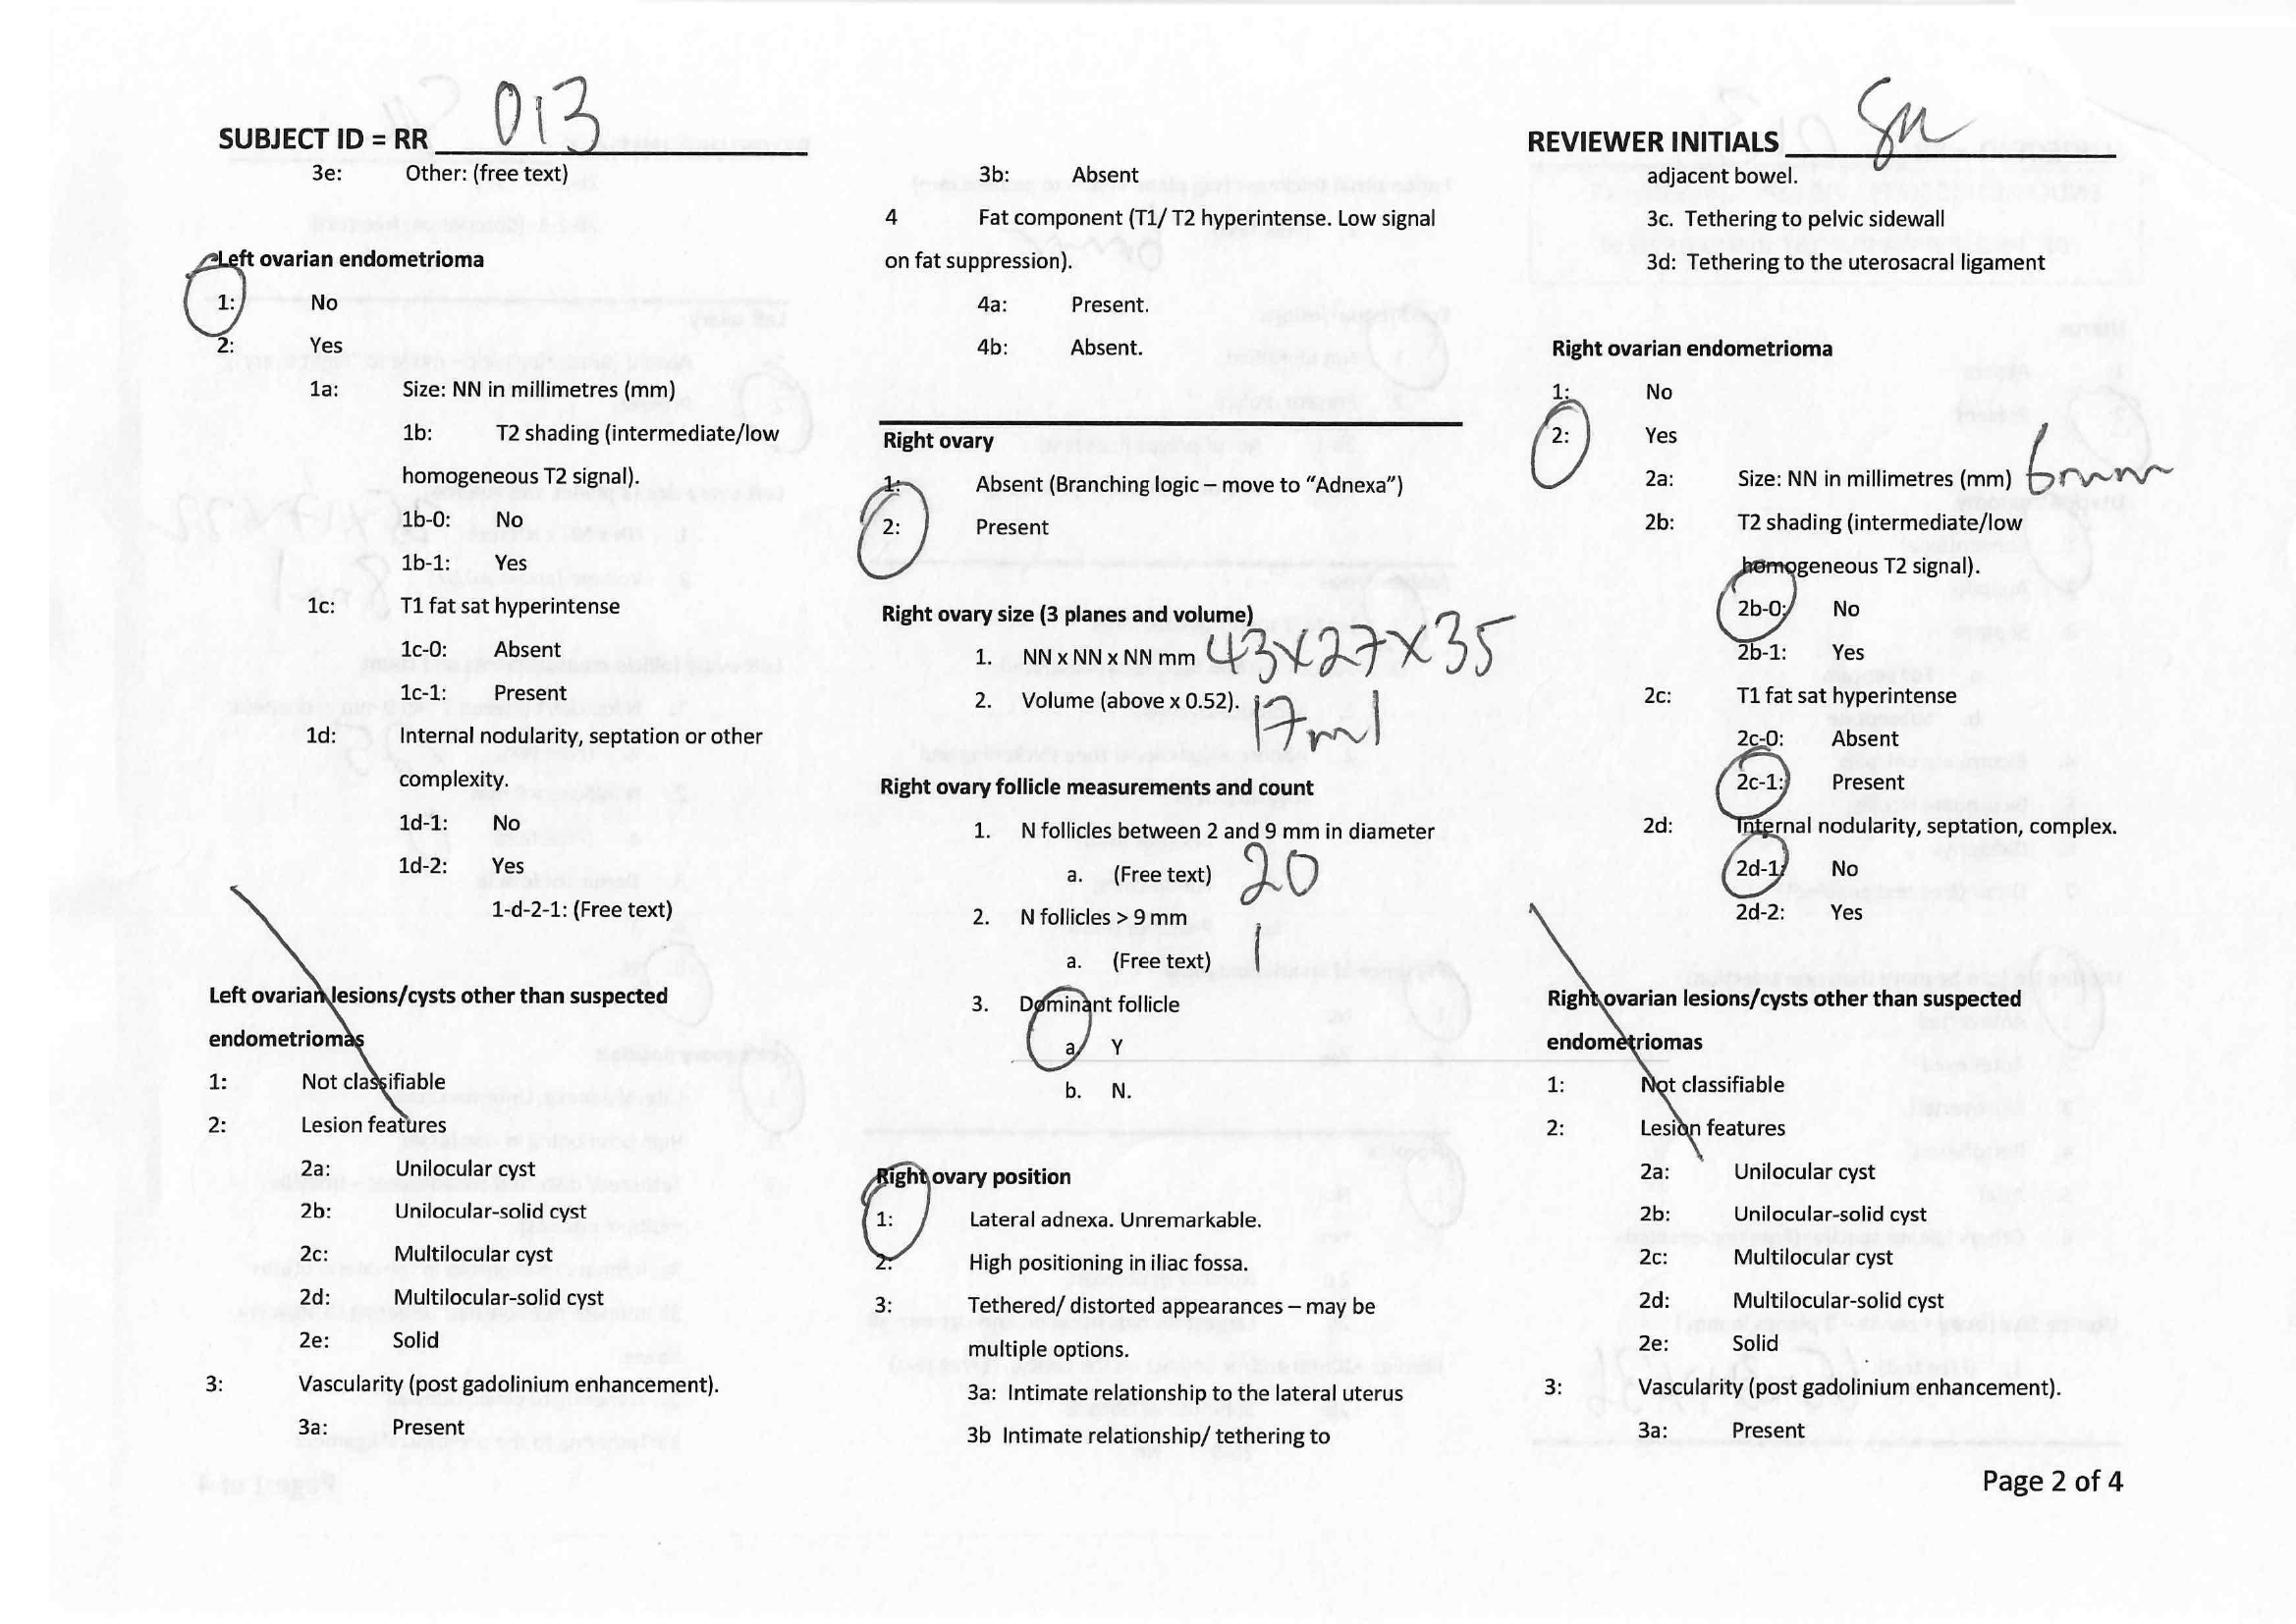 SUBJECT ID = RR 013
3e: Other: (free text)
Left ovarian endometrioma
1: No
2: Yes
1a: Size: NN in millimetres (mm)
1b: T2 shading (intermediate/low
homogeneous T2 signal).
1b-0: No
1b-1: Yes
1c: T1 fat sat hyperintense
1c-0: Absent
1c-1: Present
1d: Internal nodularity, septation or other
complexity.
1d-1: No
1d-2: Yes
1-d-2-1: (Free text)
Left ovarian lesions/cysts other than suspected
endometriomas
1: Not classifiable
2: Lesion features
2a: Unilocular cyst
2b: Unilocular-solid cyst
2c: Multilocular cyst
2d: Multilocular-solid cyst
2e: Solid
3: Vascularity (post gadolinium enhancement).
3a: Present
3b: Absent
4 Fat component (T1/ T2 hyperintense. Low signal
on fat suppression).
4a: Present.
4b: Absent.
Right ovary
1: Absent (Branching logic – move to “Adnexa”)
2: Present
Right ovary size (3 planes and volume)
1. NN x NN x NN mm 43x27x35
2. Volume (above x 0.52). 17ml
Right ovary follicle measurements and count
1. N follicles between 2 and 9 mm in diameter
a. (Free text) 20
2. N follicles > 9 mm
a. (Free text) 1
3. Dominant follicle
a. Y
b. N.
Right ovary position
1: Lateral adnexa. Unremarkable.
2: High positioning in iliac fossa.
3: Tethered/ distorted appearances – may be
multiple options.
3a: Intimate relationship to the lateral uterus
3b Intimate relationship/ tethering to
REVIEWER INITIALS
adjacent bowel.
3c. Tethering to pelvic sidewall
3d: Tethering to the uterosacral ligament
Right ovarian endometrioma
1: No
2: Yes
2a: Size: NN in millimetres (mm) 6mm
2b: T2 shading (intermediate/low
homogeneous T2 signal).
2b-0: No
2b-1: Yes
2c: T1 fat sat hyperintense
2c-0: Absent
2c-1: Present
2d: Internal nodularity, septation, complex.
2d-1: No
2d-2: Yes
Right ovarian lesions/cysts other than suspected
endometriomas
1: Not classifiable
2: Lesion features
2a: Unilocular cyst
2b: Unilocular-solid cyst
2c: Multilocular cyst
2d: Multilocular-solid cyst
2e: Solid
3: Vascularity (post gadolinium enhancement).
3a: Present
Page 2 of 4